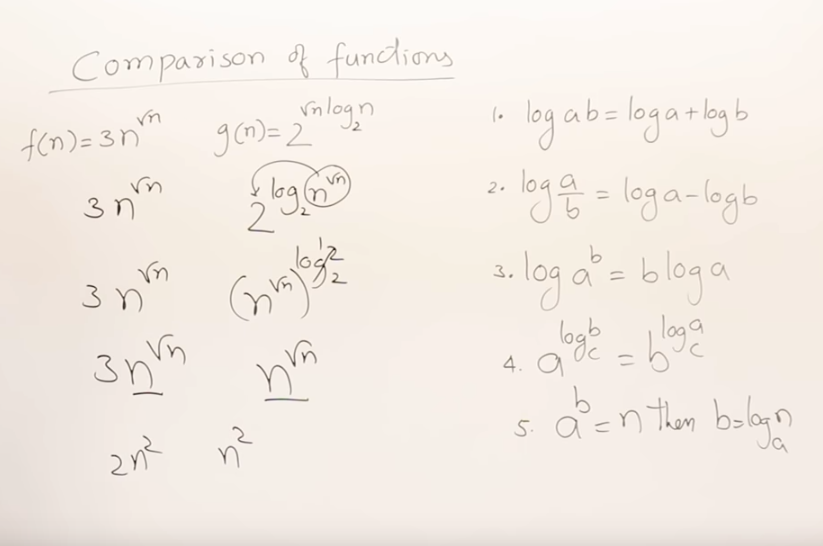 Comparison of functions
f(n)=3n^√n g(n)=2^√n log₂n
3n^√n 2^log₂(n^√n)
3n^√n (n^√n)^log₂2 1
3n^√n n^√n
2n² n²
1. log ab = log a + log b
2. log a/b = log a - log b
3. log a^b = b log a
4. a^log_c b = b^log_c a
5. a^b = n then b = log_a n